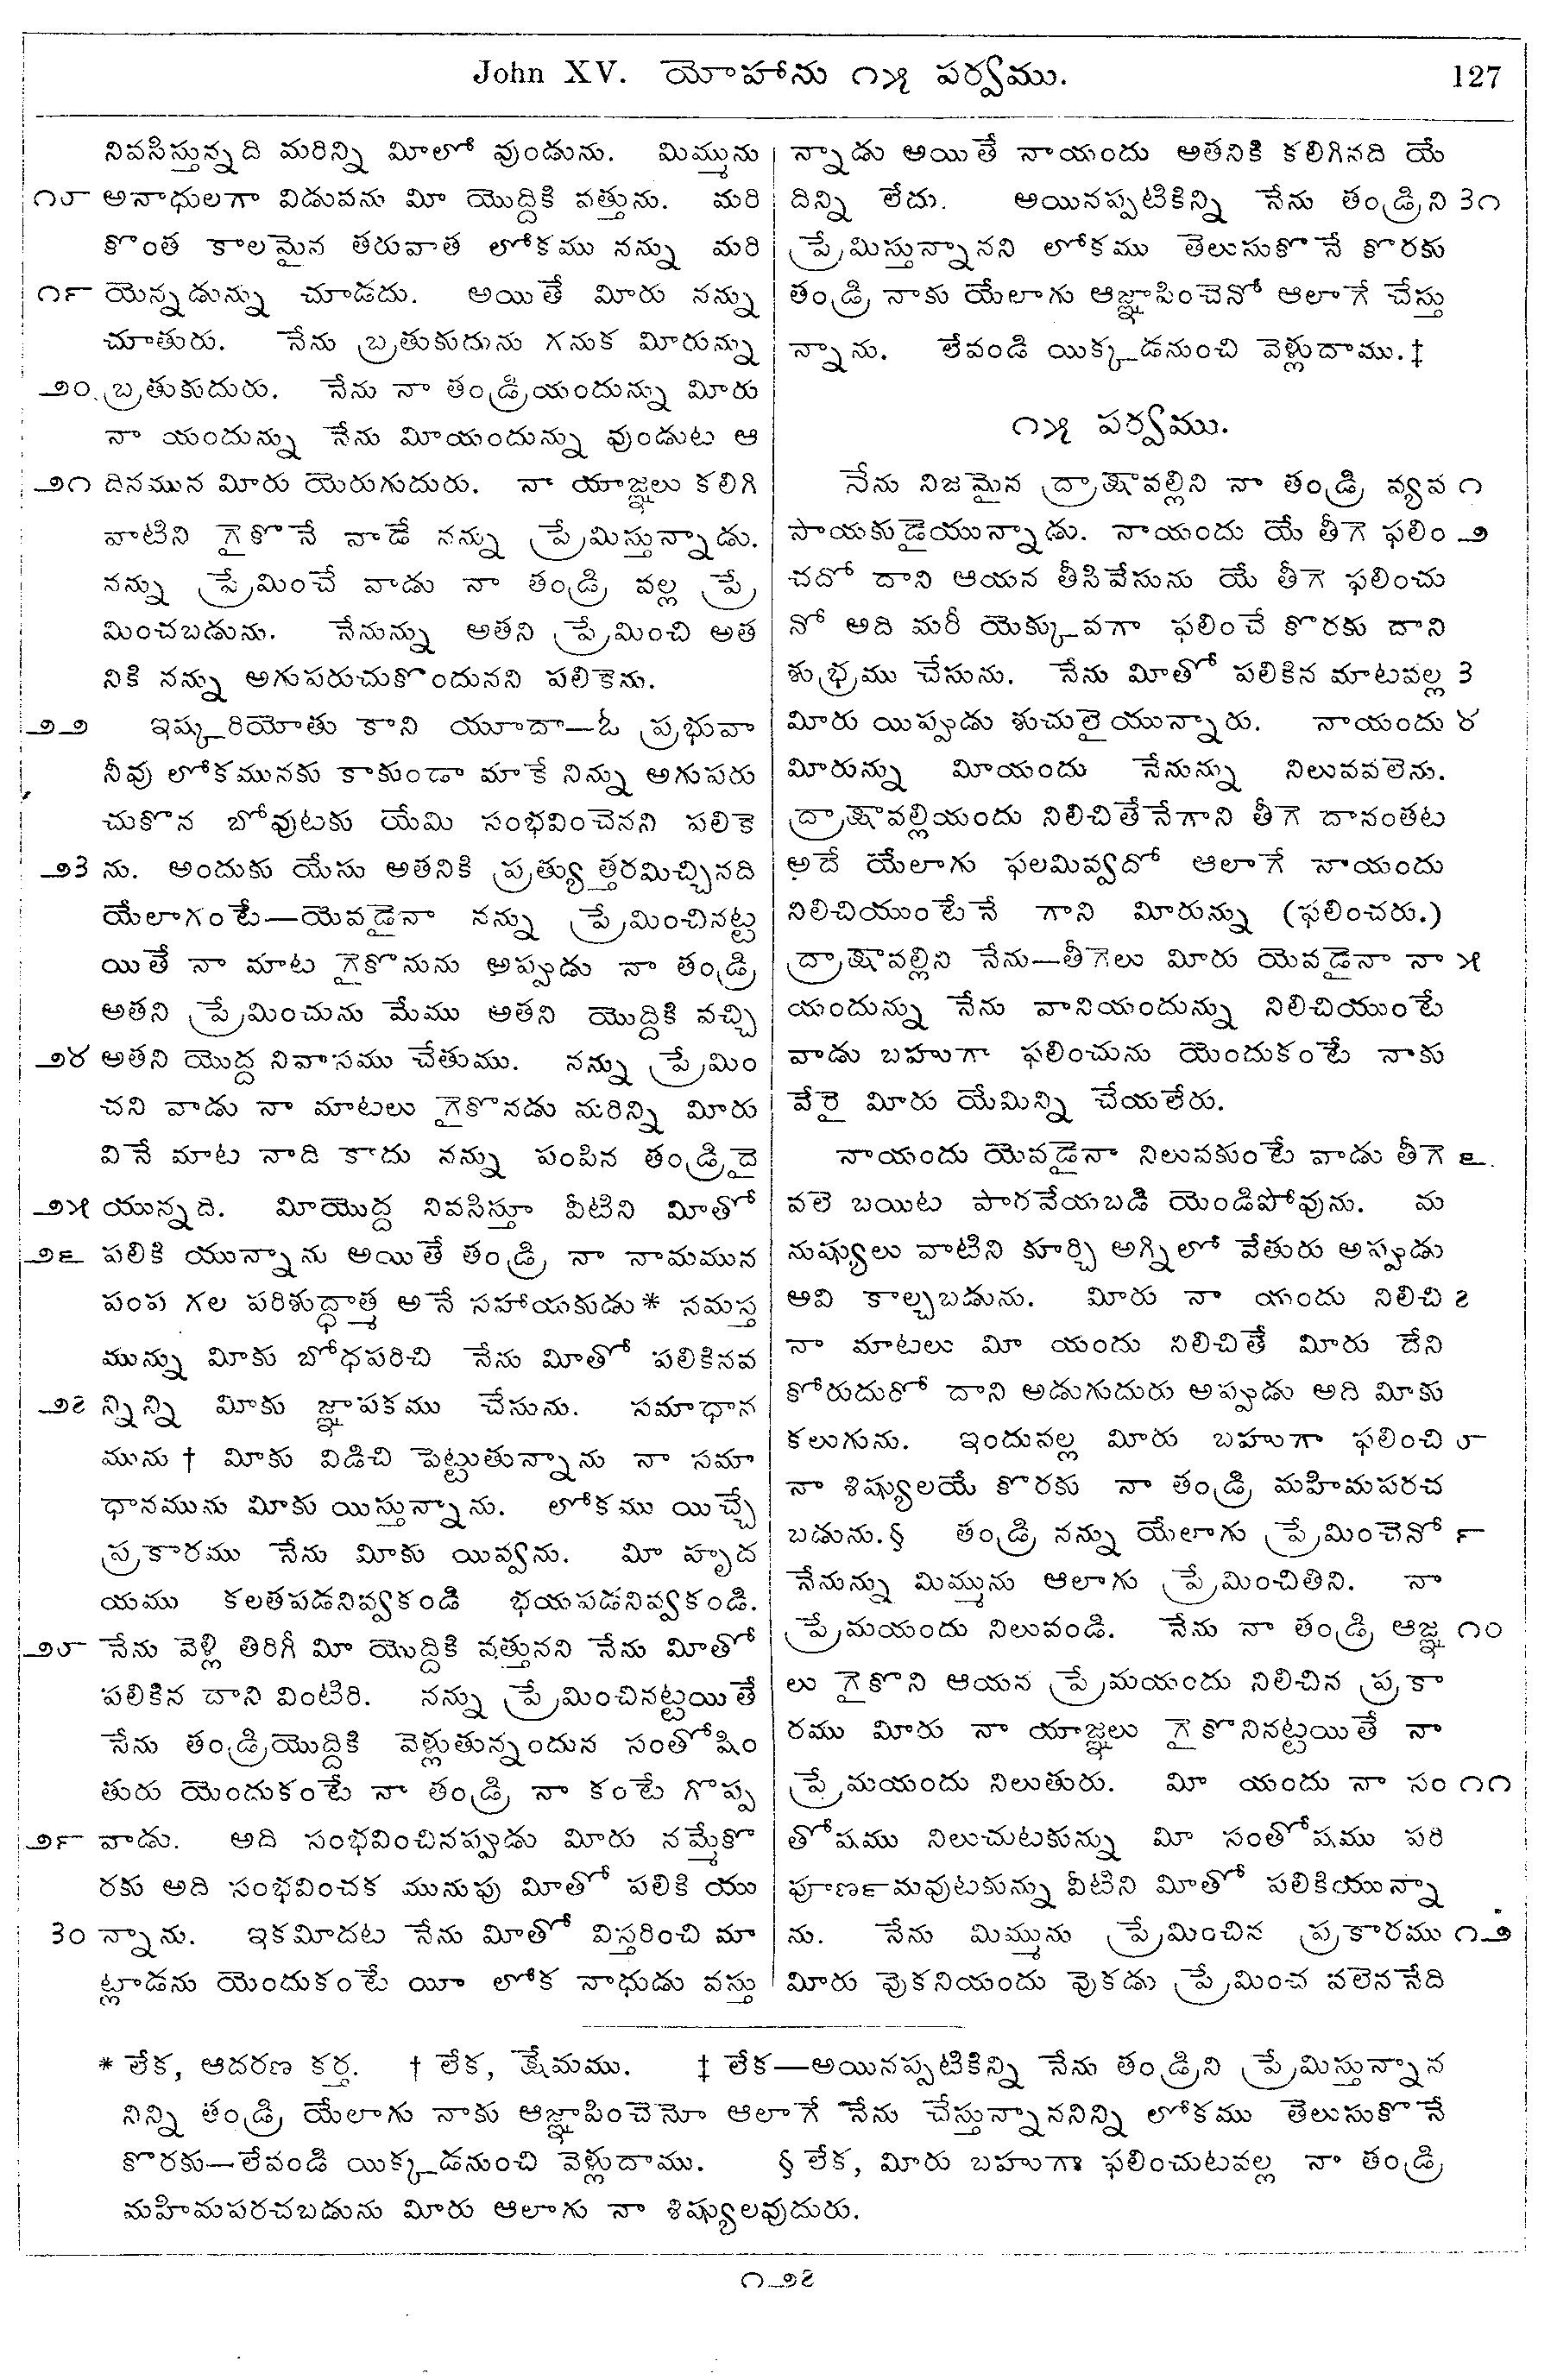 John XV. యోహాను ౧౫ పర్వము. 127
నివసిస్తున్నది మరిన్ని మీలో వుండును. మిమ్మును
౧౮ అనాధులగా విడువను మీ యొద్దికి వత్తును. మరి
కొంత కాలమైన తరువాత లోకము నన్ను మరి
౧౯ యెన్నడున్ను చూడదు. అయితే మీరు నన్ను
చూతురు. నేను బ్రతుకుదును గనుక మీరున్ను
౨౦ బ్రతుకుదురు. నేను నా తండ్రియందున్ను మీరు
నా యందున్ను నేను మీయందున్ను వుండుట ఆ
౨౧ దినమున మీరు యెరుగుదురు. నా యాజ్ఞలు కలిగి
వాటిని గైకొనే వాడే నన్ను ప్రేమిస్తున్నాడు.
నన్ను ప్రేమించే వాడు నా తండ్రి వల్ల ప్రే
మించబడును. నేనున్ను అతని ప్రేమించి అత
నికి నన్ను అగుపరుచుకొందునని పలికెను.
౨౨ ఇష్కరియోతు కాని యూదా—ఓ ప్రభువా
నీవు లోకమునకు కాకుండా మాకే నిన్ను అగుపరు
చుకొన బోవుటకు యేమి సంభవించెనని పలికె
౨౩ ను. అందుకు యేసు అతనికి ప్రత్యుత్తరమిచ్చినది
యేలాగంటే—యెవడైనా నన్ను ప్రేమించినట్ట
యితే నా మాట గైకొనును అప్పుడు నా తండ్రి
అతని ప్రేమించును మేము అతని యొద్దికి వచ్చి
౨౪ అతని యొద్ద నివాసము చేతుము. నన్ను ప్రేమిం
చని వాడు నా మాటలు గైకొనడు మరిన్ని మీరు
వినే మాట నాది కాదు నన్ను పంపిన తండ్రిదై
౨౫ యున్నది. మీయొద్ద నివసిస్తూ వీటిని మీతో
౨౬ పలికి యున్నాను అయితే తండ్రి నా నామమున
పంప గల పరిశుద్ధాత్మ అనే సహాయకుడు* సమస్త
మున్ను మీకు బోధపరిచి నేను మీతో పలికినవ
౨౭ న్నిన్ని మీకు జ్ఞాపకము చేసును. సమాధాన
మును † మీకు విడిచి పెట్టుతున్నాను నా సమా
ధానమును మీకు యిస్తున్నాను. లోకము యిచ్చే
ప్రకారము నేను మీకు యివ్వను. మీ హృద
యము కలతపడనివ్వకండి భయపడనివ్వకండి.
౨౮ నేను వెళ్లి తిరిగీ మీ యొద్దికి వత్తునని నేను మీతో
పలికిన దాని వింటిరి. నన్ను ప్రేమించినట్టయితే
నేను తండ్రియొద్దికి వెళ్లుతున్నందున సంతోషిం
తురు యెందుకంటే నా తండ్రి నా కంటే గొప్ప
౨౯ వాడు. అది సంభవించినప్పుడు మీరు నమ్మేకొ
రకు అది సంభవించక మునుపు మీతో పలికి యు
౩౦ న్నాను. ఇకమీదట నేను మీతో విస్తరించి మా
ట్లాడను యెందుకంటే యీ లోక నాధుడు వస్తు
న్నాడు అయితే నాయందు అతనికి కలిగినది యే
దిన్ని లేదు. అయినప్పటికిన్ని నేను తండ్రిని ౩౧
ప్రేమిస్తున్నానని లోకము తెలుసుకొనే కొరకు
తండ్రి నాకు యేలాగు ఆజ్ఞాపించెనో ఆలాగే చేస్తు
న్నాను. లేవండి యిక్కడనుంచి వెళ్లుదాము.‡
౧౫ పర్వము.
నేను నిజమైన ద్రాక్షావల్లిని నా తండ్రి వ్యవ ౧
సాయకుడైయున్నాడు. నాయందు యే తీగె ఫలిం ౨
చదో దాని ఆయన తీసివేసును యే తీగె ఫలించు
నో అది మరీ యెక్కువగా ఫలించే కొరకు దాని
శుభ్రము చేసును. నేను మీతో పలికిన మాటవల్ల ౩
మీరు యిప్పుడు శుచులైయున్నారు. నాయందు ౪
మీరున్ను మీయందు నేనున్ను నిలువవలెను.
ద్రాక్షావల్లియందు నిలిచితేనేగాని తీగె దానంతట
అదే యేలాగు ఫలమివ్వదో ఆలాగే నాయందు
నిలిచియుంటేనే గాని మీరున్ను (ఫలించరు.)
ద్రాక్షావల్లిని నేను—తీగెలు మీరు యెవడైనా నా ౫
యందున్ను నేను వానియందున్ను నిలిచియుంటే
వాడు బహుగా ఫలించును యెందుకంటే నాకు
వేరై మీరు యేమిన్ని చేయలేరు.
నాయందు యెవడైనా నిలువకుంటే వాడు తీగె ౬
వలె బయిట పారవేయబడి యెండిపోవును. మ
నుష్యులు వాటిని కూర్చి అగ్నిలో వేతురు అప్పుడు
అవి కాల్చబడును. మీరు నా యందు నిలిచి ౭
నా మాటలు మీ యందు నిలిచితే మీరు దేని
కోరుదురో దాని అడుగుదురు అప్పుడు అది మీకు
కలుగును. ఇందువల్ల మీరు బహుగా ఫలించి ౮
నా శిష్యులయే కొరకు నా తండ్రి మహిమపరచ
బడును.§ తండ్రి నన్ను యేలాగు ప్రేమించెనో ౯
నేనున్ను మిమ్మును ఆలాగు ప్రేమించితిని. నా
ప్రేమయందు నిలువండి. నేను నా తండ్రి ఆజ్ఞ ౧౦
లు గైకొని ఆయన ప్రేమయందు నిలిచిన ప్రకా
రము మీరు నా యాజ్ఞలు గైకొనినట్టయితే నా
ప్రేమయందు నిలుతురు. మీ యందు నా సం ౧౧
తోషము నిలుచుటకున్ను మీ సంతోషము పరి
పూణ౯మవుటకున్ను వీటిని మీతో పలికియున్నా
ను. నేను మిమ్మును ప్రేమించిన ప్రకారము ౧౨
మీరు వొకనియందు వొకడు ప్రేమించ వలెననేది
* లేక, ఆదరణ కర్త. † లేక, క్షేమము. ‡ లేక—అయినప్పటికిన్ని నేను తండ్రిని ప్రేమిస్తున్నాన
నిన్ని తండ్రి యేలాగు నాకు ఆజ్ఞాపించెనో ఆలాగే నేను చేస్తున్నాననిన్ని లోకము తెలుసుకొనే
కొరకు—లేవండి యిక్కడనుంచి వెళ్లుదాము. § లేక, మీరు బహుగా ఫలించుటవల్ల నా తండ్రి
మహిమపరచబడును మీరు ఆలాగు నా శిష్యులవుదురు.
౧౨౭